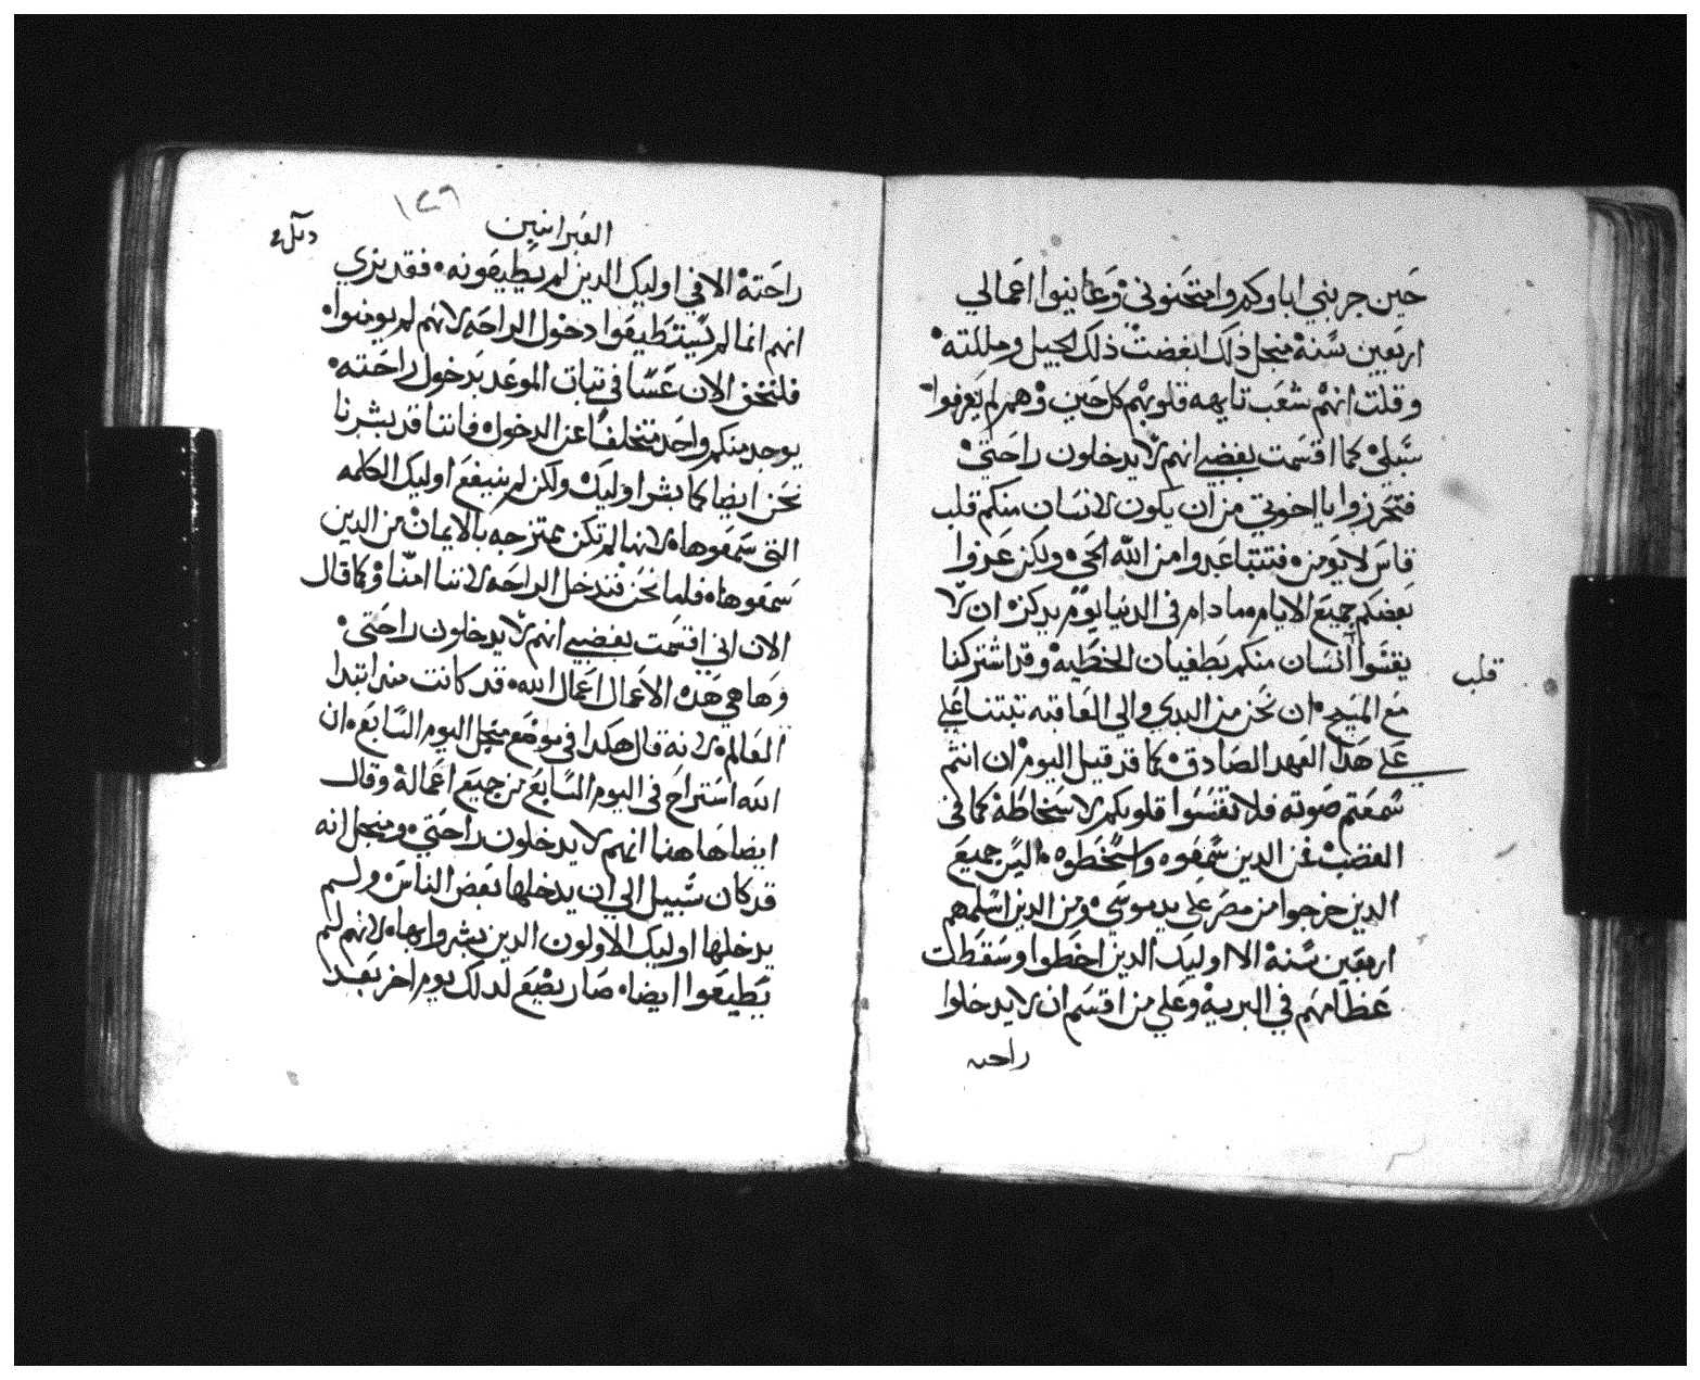 حين جربني اباوكم وامتحنوني وعاينوا اعمالي
اربعين سنة منجل ذلك ابغضت ذلك الجيل ومللته
وقلت انهم شعب تايهه قلوبهم كل حين وهم لم يعرفوا
سبلي كما اقسمت بغضبي انهم لا يدخلون راحتي
فتحرزوا يا اخوتي من ان يكون لانسان منكم قلب
قاس لا يومن فتتباعدوا من الله الحي ولكن عزوا
بعضكم جميع الايام ما دام في الدنيا يوم يدكر ان لا
يقسوا انسان منكم بطغيان الخطيه وقد اشتركنا
قلب
مع المسيح ان نحن من البدي والي العاقبه ثبتنا علي
علي هدا العهد الصادق كما قد قيل اليوم ان انتم
سمعتم صوته فلا تقسوا قلوبكم لاسخاطه كما في
الغضب فمن الدين سمعوه واسخطوه اليس جميع
الدين خرجوا من مصر علي يد موسي ومن الدين اسلمهم
اربعين سنة الا اوليك الدين اخطوا وسقطت
عظامهم في البرية وعلي من اقسم ان لا يدخلوا
راحته
١٢٦
العبرانيين
راحته الا في اوليك الدين لم يطيعونه فقد نري
انهم انما لم يستطيعوا دخول الراحه لانهم لم يومنوا
فلنخف الان عسا في تبات الموعد بدخول راحته
يوجد منكم واحد متخلفا عن الدخول فاننا قد بشرنا
نحن ايضا كما بشر اوليك ولكن لم ينفع اوليك الكلمه
التي سمعوها لانها لم تكن ممتزجه بالايمان من الدين
سمعوها فلما نحن فندخل الراحه لاننا امنا وكما قال
الان اني اقسمت بغضبي انهم لا يدخلون راحتي
وها هي هده الاعمال اعمال الله قد كانت مند ابتدا
العالم لانه قال هكدا في موضع منجل اليوم السابع ان
الله استراح في اليوم السابع من جميع اعماله وقال
ايضا هاهنا انهم لا يدخلون راحتي ومنجل انه
قد كان سبيل الي ان يدخلها بعض الناس ولم
يدخلها اوليك الاولون الدين بشروا بها لانهم لم
يطيعوا ايضا صار يضع لدلك يوم اخر بعد